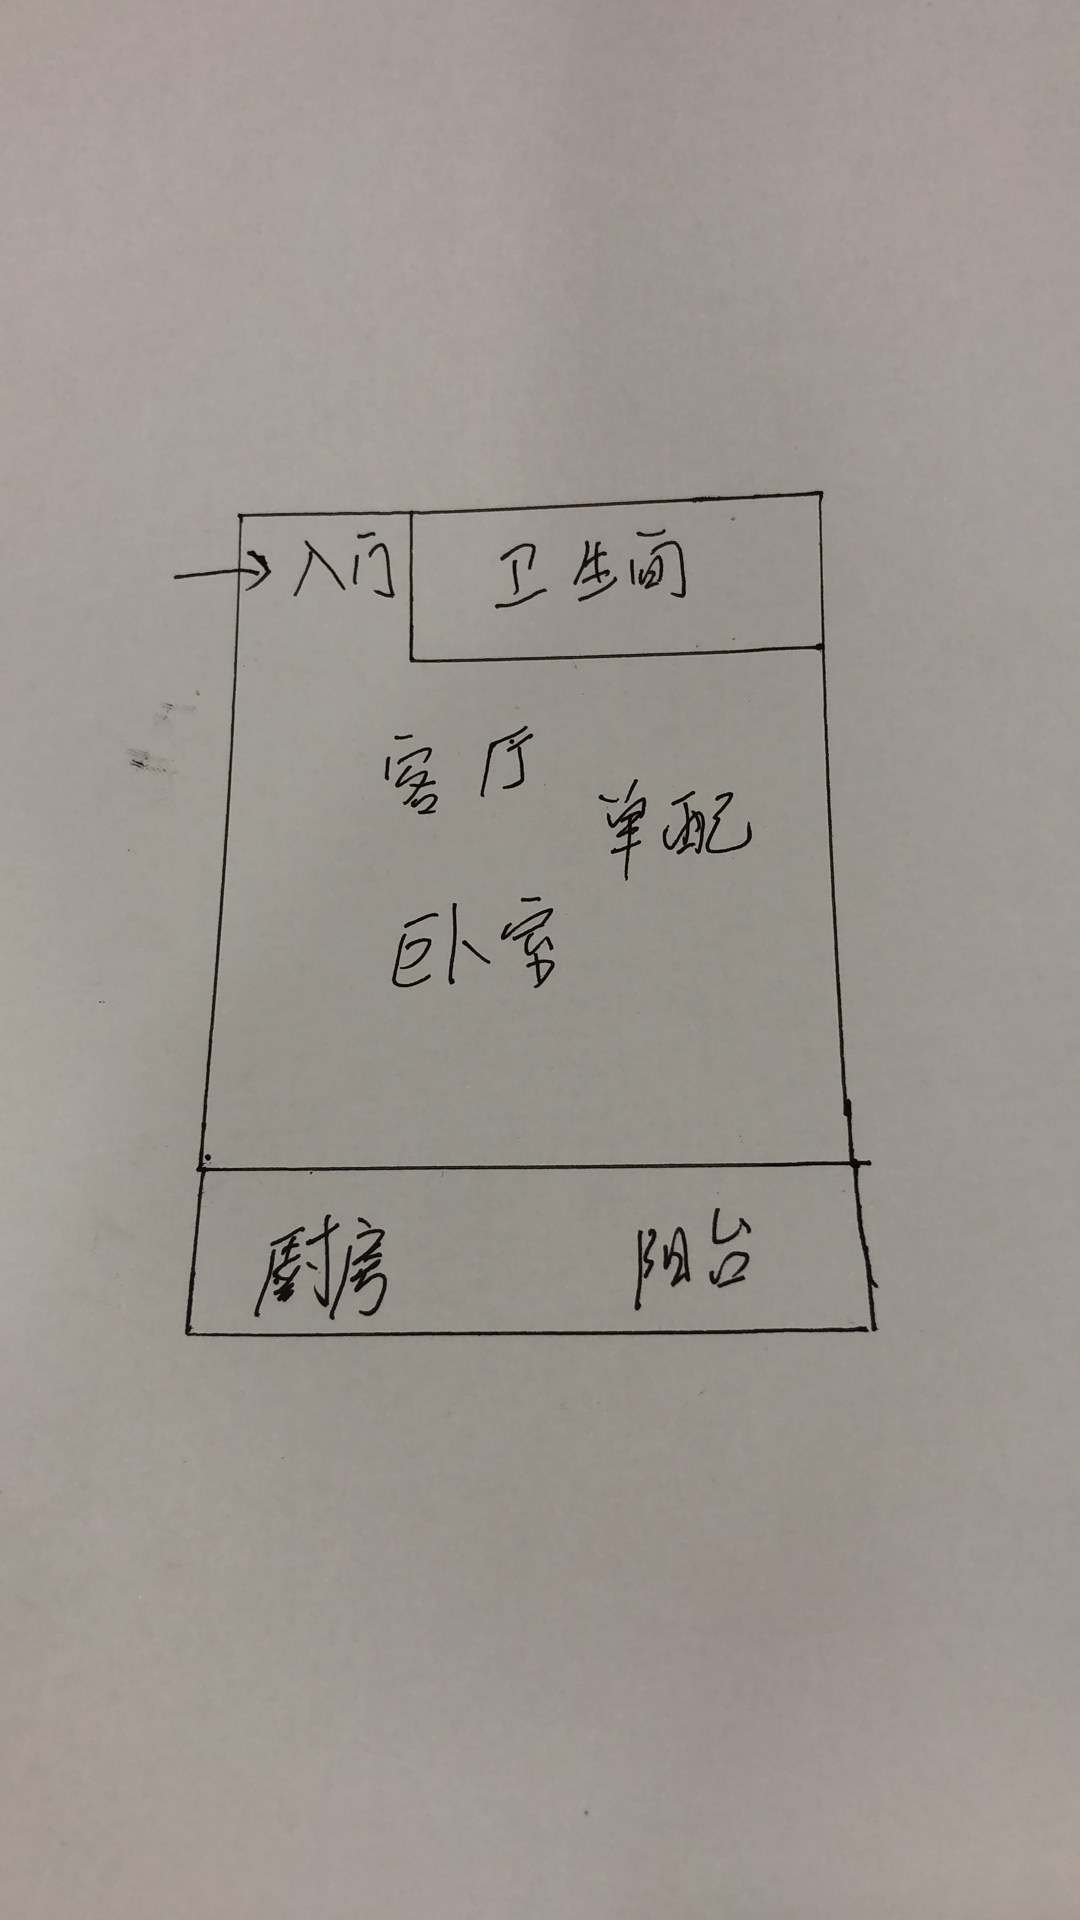 入门
卫生间
客厅
单配
卧室
厨房
阳台